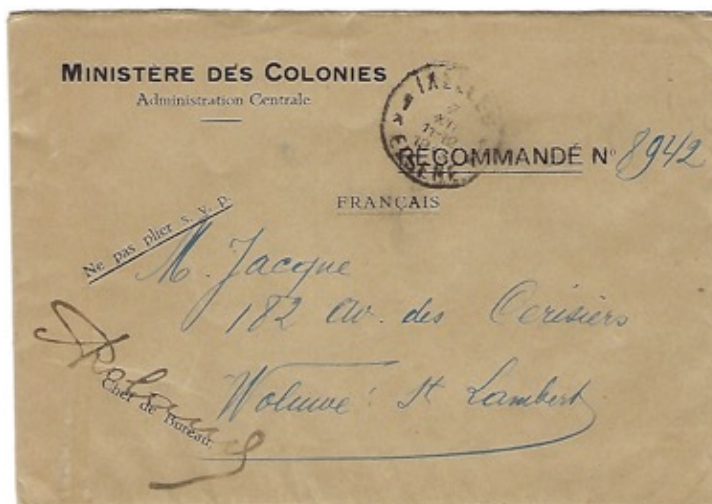 MINISTÈRE DES COLONIES
Administration Centrale
IXELLES
ELSENE
RECOMMANDÉ Nº 8942
FRANÇAIS
Ne pas plier s. v. p.
M. Jacque
182 av. des Cerisiers
Woluwé St Lambert
Chef de Bureau,